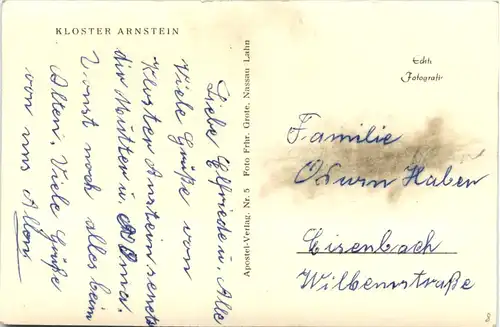 KLOSTER ARNSTEIN
Liebe Elfriede u. Alle
Viele Grüße von
Kloster Arnstein sendet
dir Mutter u. Oma.
Sonst noch alles beim
Alten. Viele Grüße
von uns Allen
Apostel-Verlag. Nr. 5 Foto Frhr. Grote. Nassau Lahn
Echte
Fotografie
Familie
Haben
Eisenbach